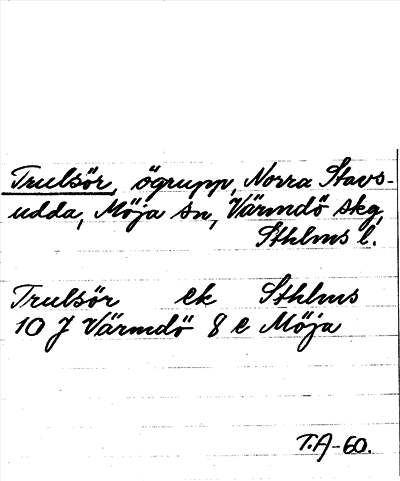 Trulsör, ögrupp, Norra Stavs-
udda, Möja sn, Värmdö skg,
Sthlms l.
Trulsör ek Sthlms
10 J Värmdö 8 e Möja
T.A-60.